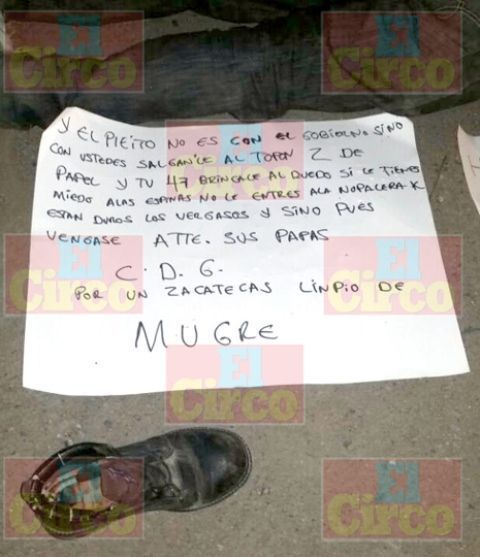 El Circo
El Circo
Y EL PLEITO NO ES CON EL GOBIERNO SINO
CON USTEDES SALGANLE AL TOPON Z DE
PAPEL Y TU 47 BRINCALE AL RUEDO SI LE TIENES
MIEDO ALAS ESPINAS NO LE ENTRES ALA NOPALERA K
ESTAN DUROS LOS VERGASOS Y SINO PUES
VENGASE ATTE. SUS PAPAS
C. D. G.
POR UN ZACATECAS LINPIO DE
MUGRE
El Circo
El Circo
El Circo
El Circo
El Circo